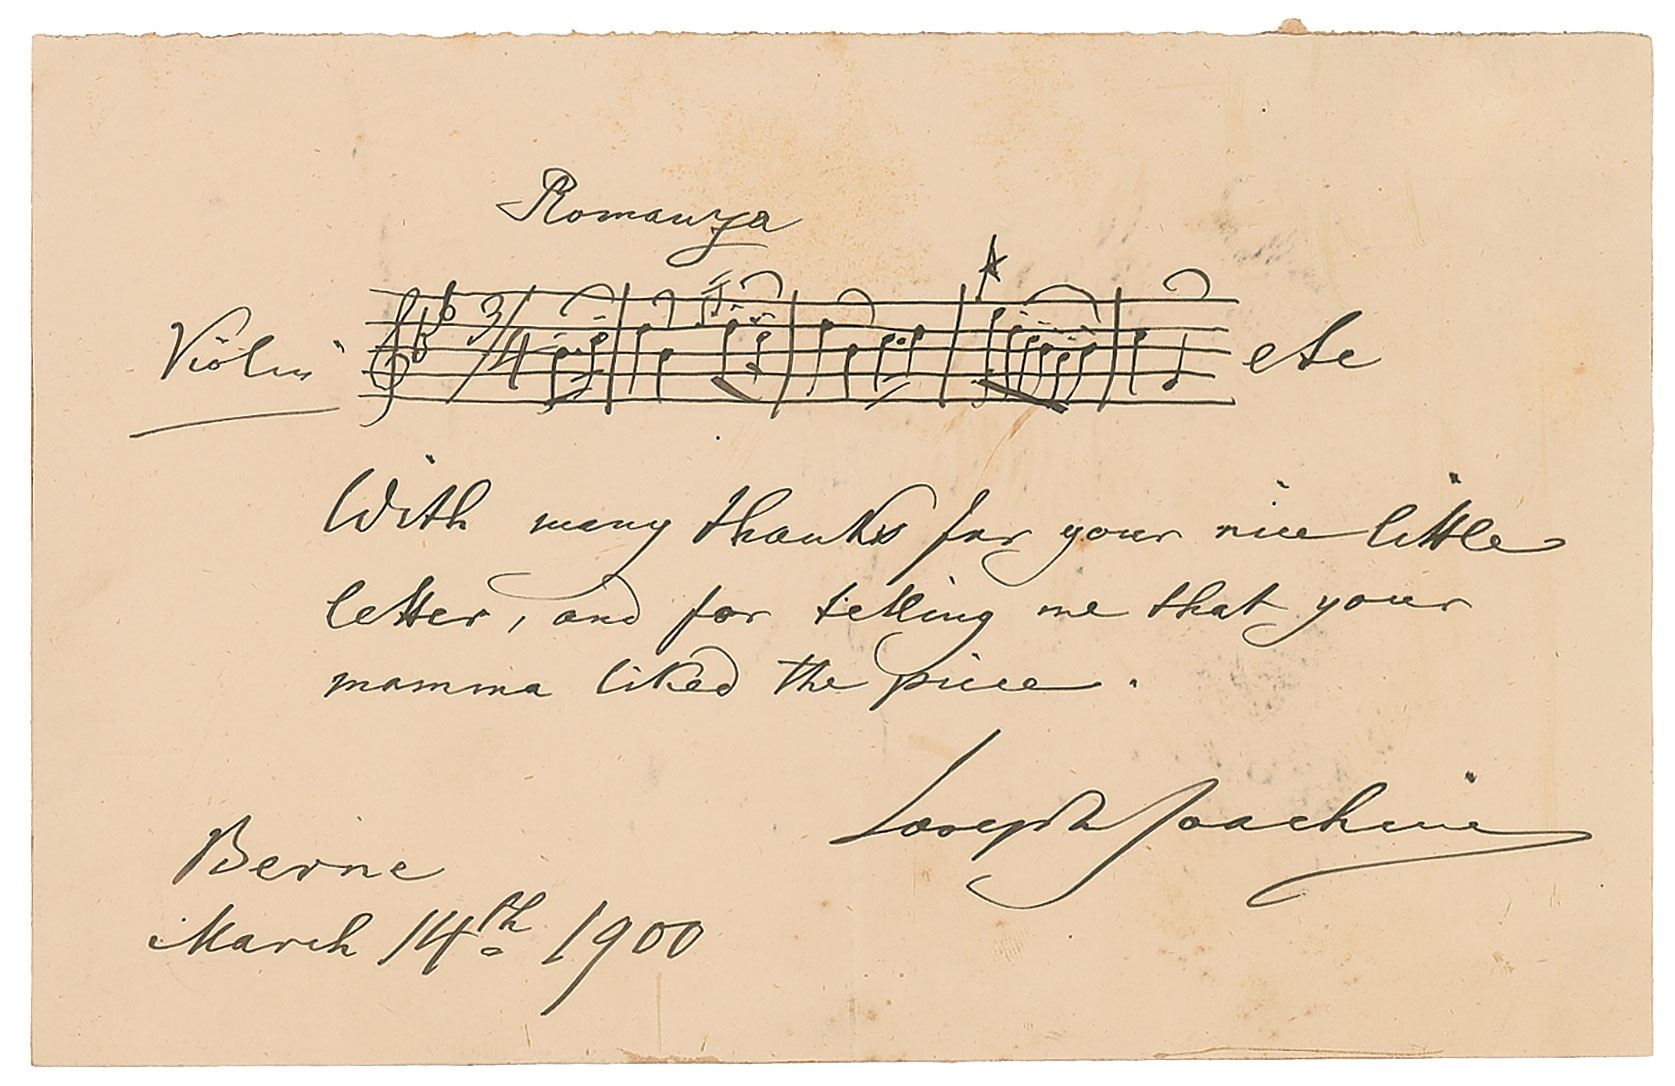 Romanza
Violin 3/4 etc
With many thanks for your nice little
letter, and for telling me that your
mamma liked the piece.
Joseph Joachim
Berne
March 14th 1900